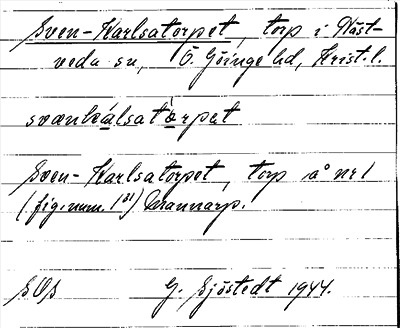 Sven-Karlsatorpet, torp i Väst-
veda sn, Ö. Göinge hd, Krist. l.
svænkálsatòrpet
Sven-Karlsatorpet, torp å nr 1
(fig.num. 1³¹) Mannarp.
SOS G. Sjöstedt 1944.